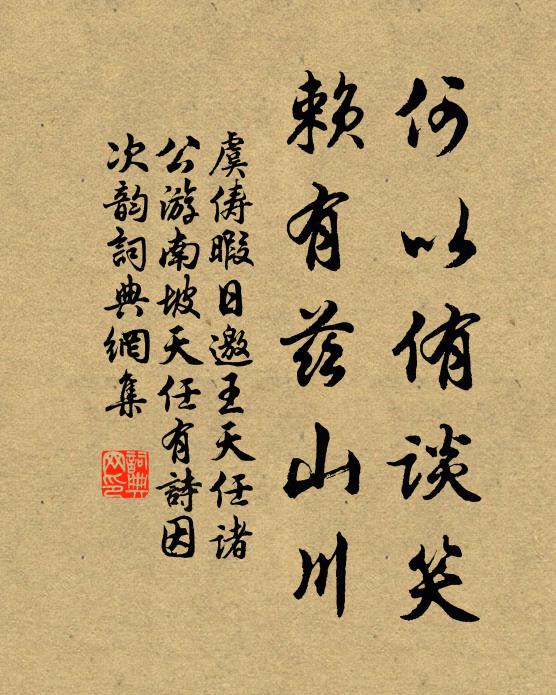 何以侑谈笑
赖有兹山川
虞俦暇日邀王天任诸
公游南坡天任有詩因
次韵詞典網集
詞典网印